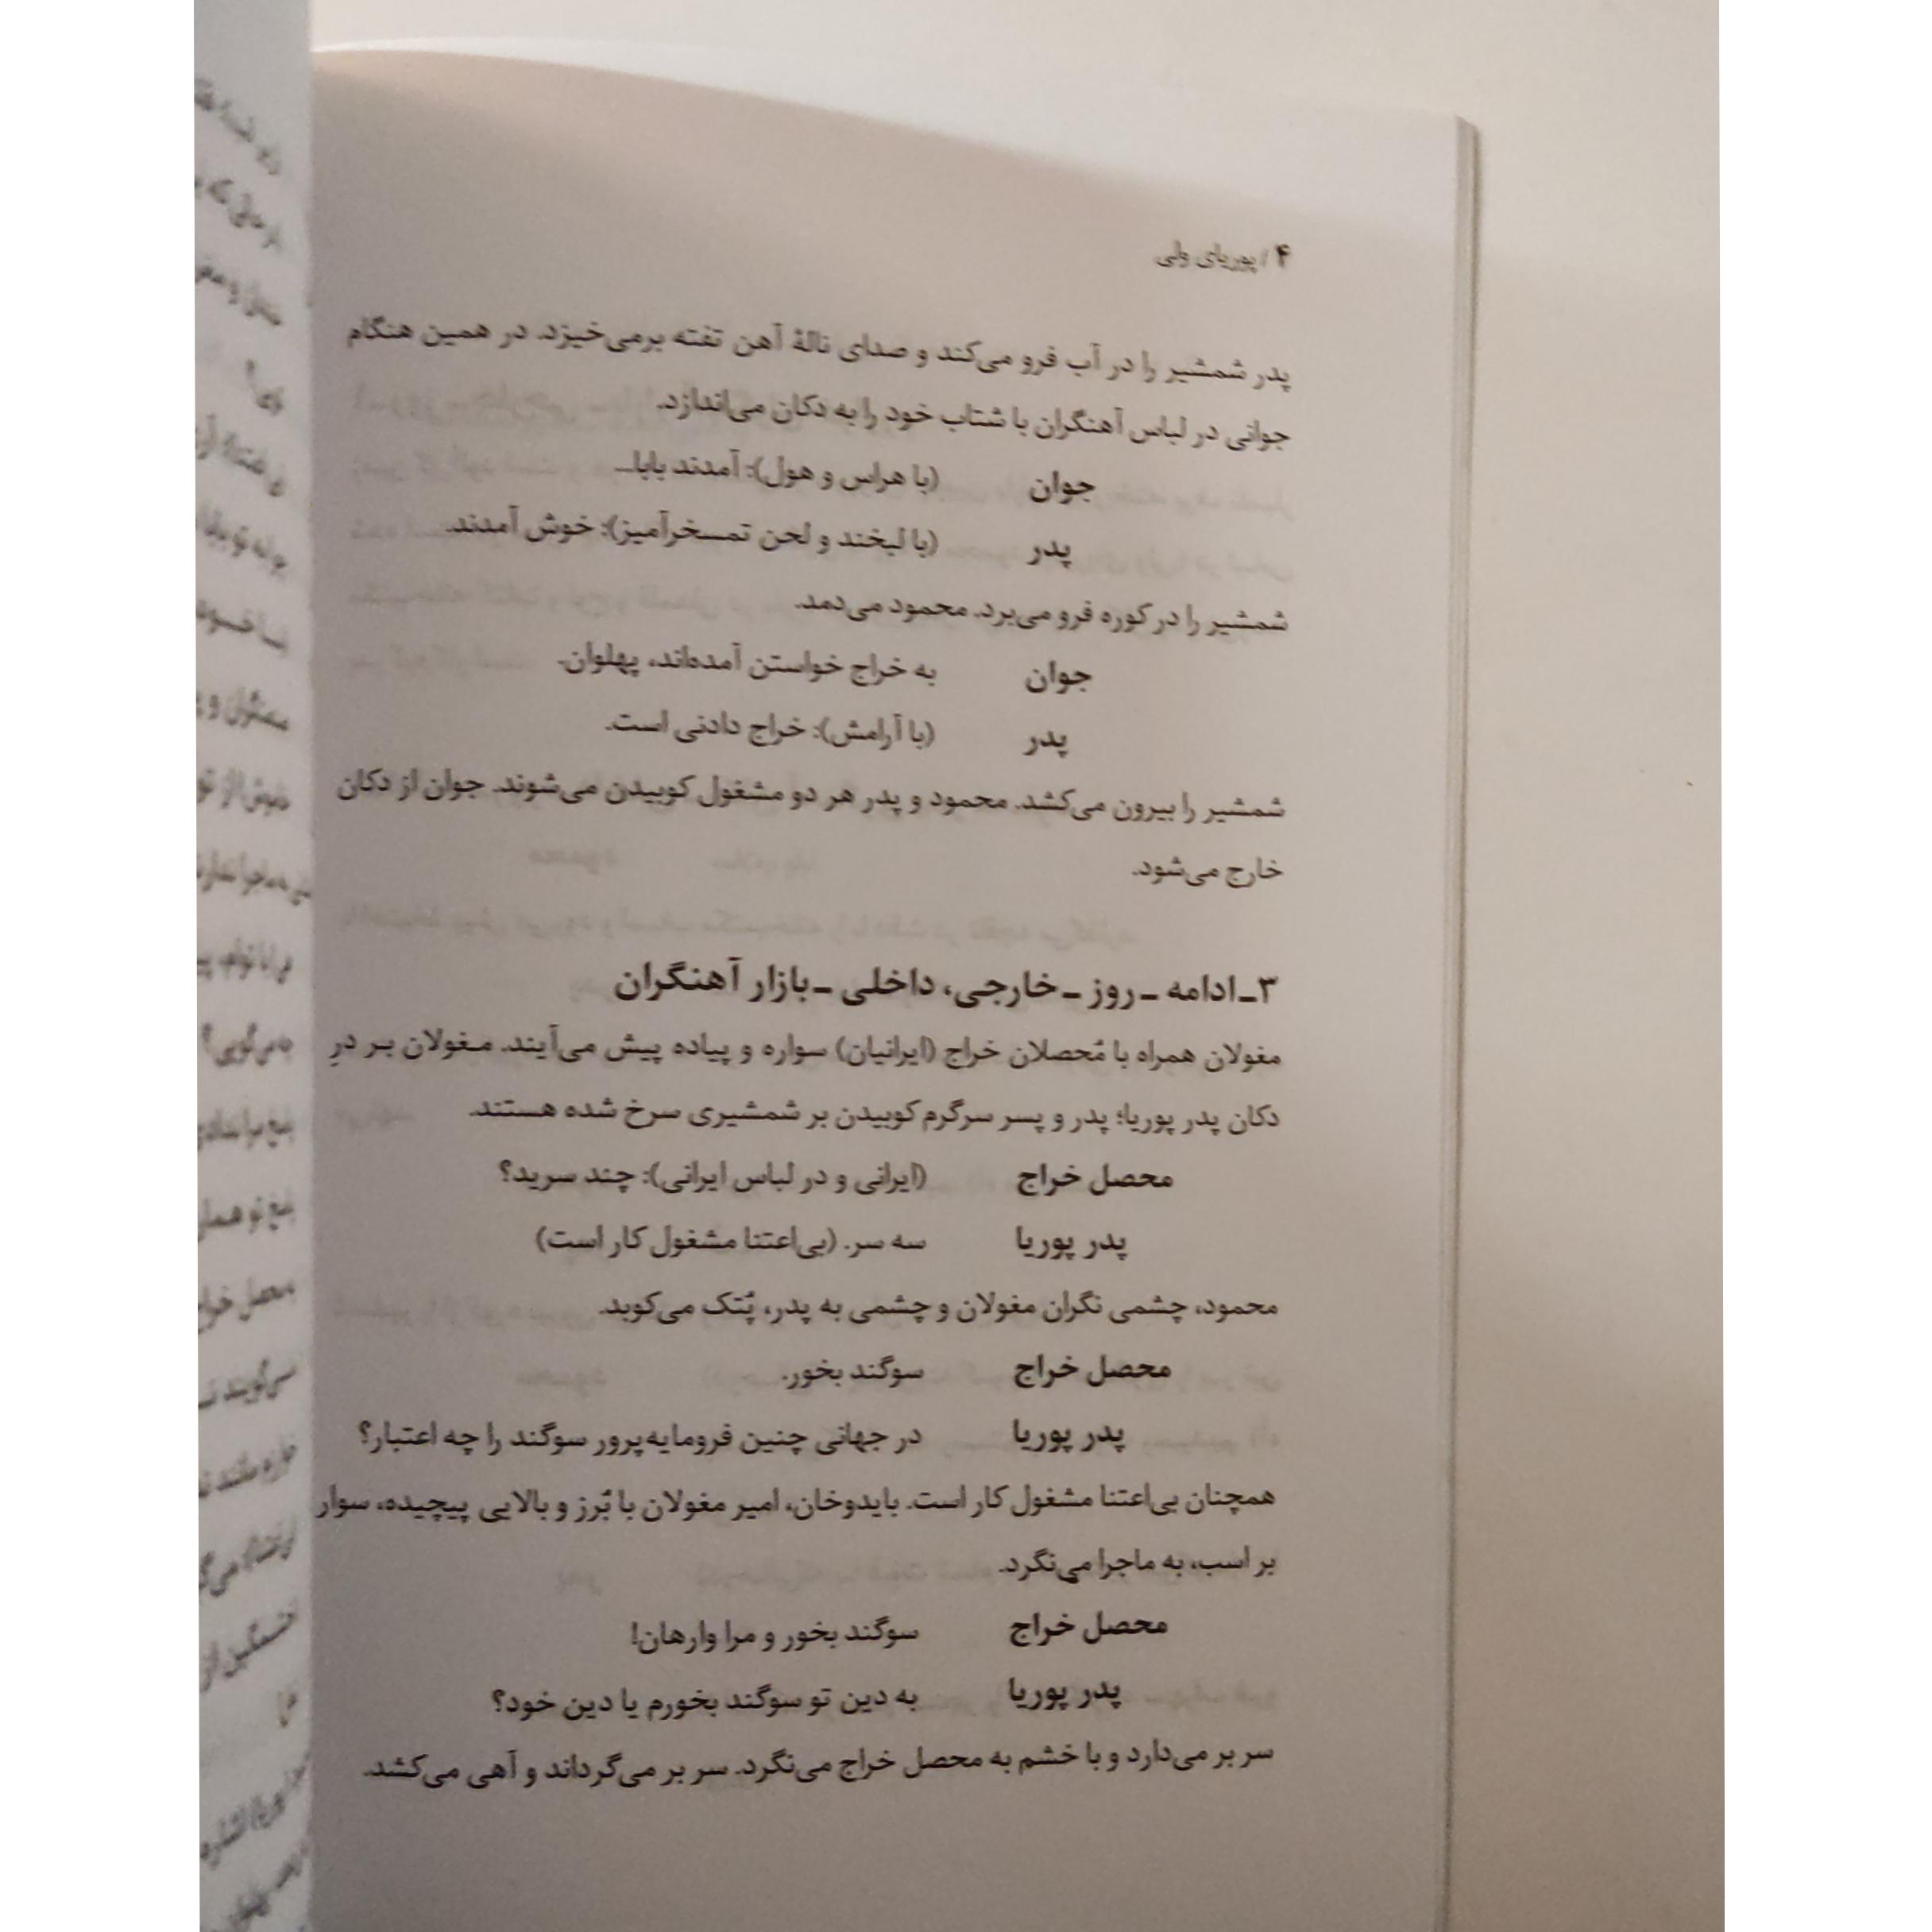 ۴ / پوریای ولی
پدر شمشیر را در آب فرو می‌کند و صدای نالهٔ آهن تفته برمی‌خیزد. در همین هنگام
جوانی در لباس آهنگران با شتاب خود را به دکان می‌اندازد.
جوان (با هراس و هول): آمدند بابا...
پدر (با لبخند و لحن تمسخرآمیز): خوش آمدند.
شمشیر را در کوره فرو می‌برد. محمود می‌دمد.
جوان به خراج خواستن آمده‌اند، پهلوان.
پدر (با آرامش): خراج دادنی است.
شمشیر را بیرون می‌کشد. محمود و پدر هر دو مشغول کوبیدن می‌شوند. جوان از دکان
خارج می‌شود.
۳ـ ادامه ـ روز ـ خارجی، داخلی ـ بازار آهنگران
مغولان همراه با مُحصلان خراج (ایرانیان) سواره و پیاده پیش می‌آیند. مغولان بر درِ
دکان پدر پوریا؛ پدر و پسر سرگرم کوبیدن بر شمشیری سرخ شده هستند.
محصل خراج (ایرانی و در لباس ایرانی): چند سرید؟
پدر پوریا سه سر. (بی‌اعتنا مشغول کار است)
محمود، چشمی نگران مغولان و چشمی به پدر، پُتک می‌کوبد.
محصل خراج سوگند بخور.
پدر پوریا در جهانی چنین فرومایه‌پرور سوگند را چه اعتبار؟
همچنان بی‌اعتنا مشغول کار است. بایدوخان، امیر مغولان با بُرز و بالایی پیچیده، سوار
بر اسب، به ماجرا می‌نگرد.
محصل خراج سوگند بخور و مرا وارهان!
پدر پوریا به دین تو سوگند بخورم یا دین خود؟
سر بر می‌دارد و با خشم به محصل خراج می‌نگرد. سر بر می‌گرداند و آهی می‌کشد.